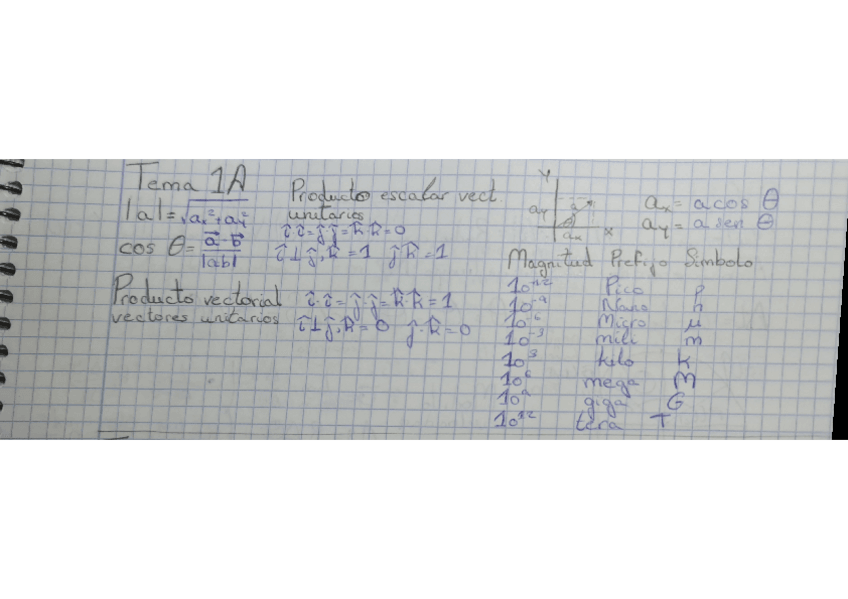 Tema 1A
|a|=√ax²+ay²
cos θ = a⃗·b⃗/|ab|
Producto escalar vect.
unitarios
î·î=ĵ·ĵ=k̂·k̂=0
î⊥ĵ,k̂=1 ĵk̂=1
Producto vectorial
vectores unitarios
î·î=ĵ·ĵ=k̂k̂=1
î⊥ĵ,k̂=0 ĵ·k̂=0
Y
ay
a
θ
ax
x
ax= a cos θ
ay= a sen θ
Magnitud Prefijo Símbolo
10⁻¹² Pico p
10⁻⁹ Nano n
10⁻⁶ Micro μ
10⁻³ mili m
10³ kilo K
10⁶ mega M
10⁹ giga G
10¹² tera T